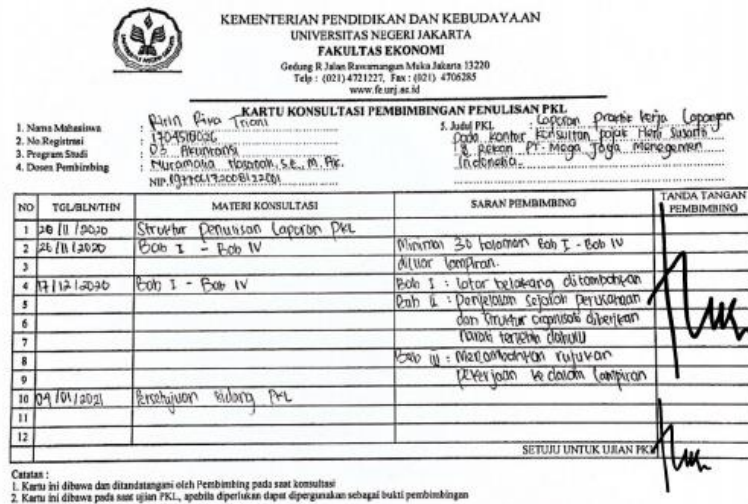 KEMENTERIAN PENDIDIKAN DAN KEBUDAYAAN
UNIVERSITAS NEGERI JAKARTA
FAKULTAS EKONOMI
Gedung R Jalan Rawamangun Muka Jakarta 13220
Telp : (021) 4721227, Fax : (021) 4706285
www.fe.unj.ac.id
KARTU KONSULTASI PEMBIMBINGAN PENULISAN PKL
1. Nama Mahasiswa : Ririn Riva Triani
2. No.Registrasi :
3. Program Studi : D3 Akuntansi
4. Dosen Pembimbing : Nuramalia Hasanah, S.E., M. Ak.
NIP.
5. Judul PKL : Laporan Praktik Kerja Lapangan
Pada Kantor Konsultan Pajak Heri Susanti
& Rekan PT. Mega Jaga Management
Indonesia
NO TGL/BLN/THN MATERI KONSULTASI SARAN PEMBIMBING TANDA TANGAN PEMBIMBING
1 20/11/2020 Struktur Penulisan Laporan PKL
2 26/11/2020 Bab I - Bab IV Minimal 30 halaman Bab I - Bab IV
3 diluar lampiran.
4 17/12/2020 Bab I - Bab IV Bab I : latar belakang ditambahkan
5 Bab II : Penjelasan sejarah perusahaan
6 dan struktur organisasi diberikan
7 narasi terlebih dahulu
8 Bab III : Menambahkan rujukan
9 pekerjaan ke dalam lampiran
10 04/01/2021 Persetujuan Sidang PKL
11
12
SETUJU UNTUK UJIAN PKL
Catatan :
1. Kartu ini dibawa dan ditandatangani oleh Pembimbing pada saat konsultasi
2. Kartu ini dibawa pada saat ujian PKL, apabila diperlukan dapat dipergunakan sebagai bukti pembimbingan